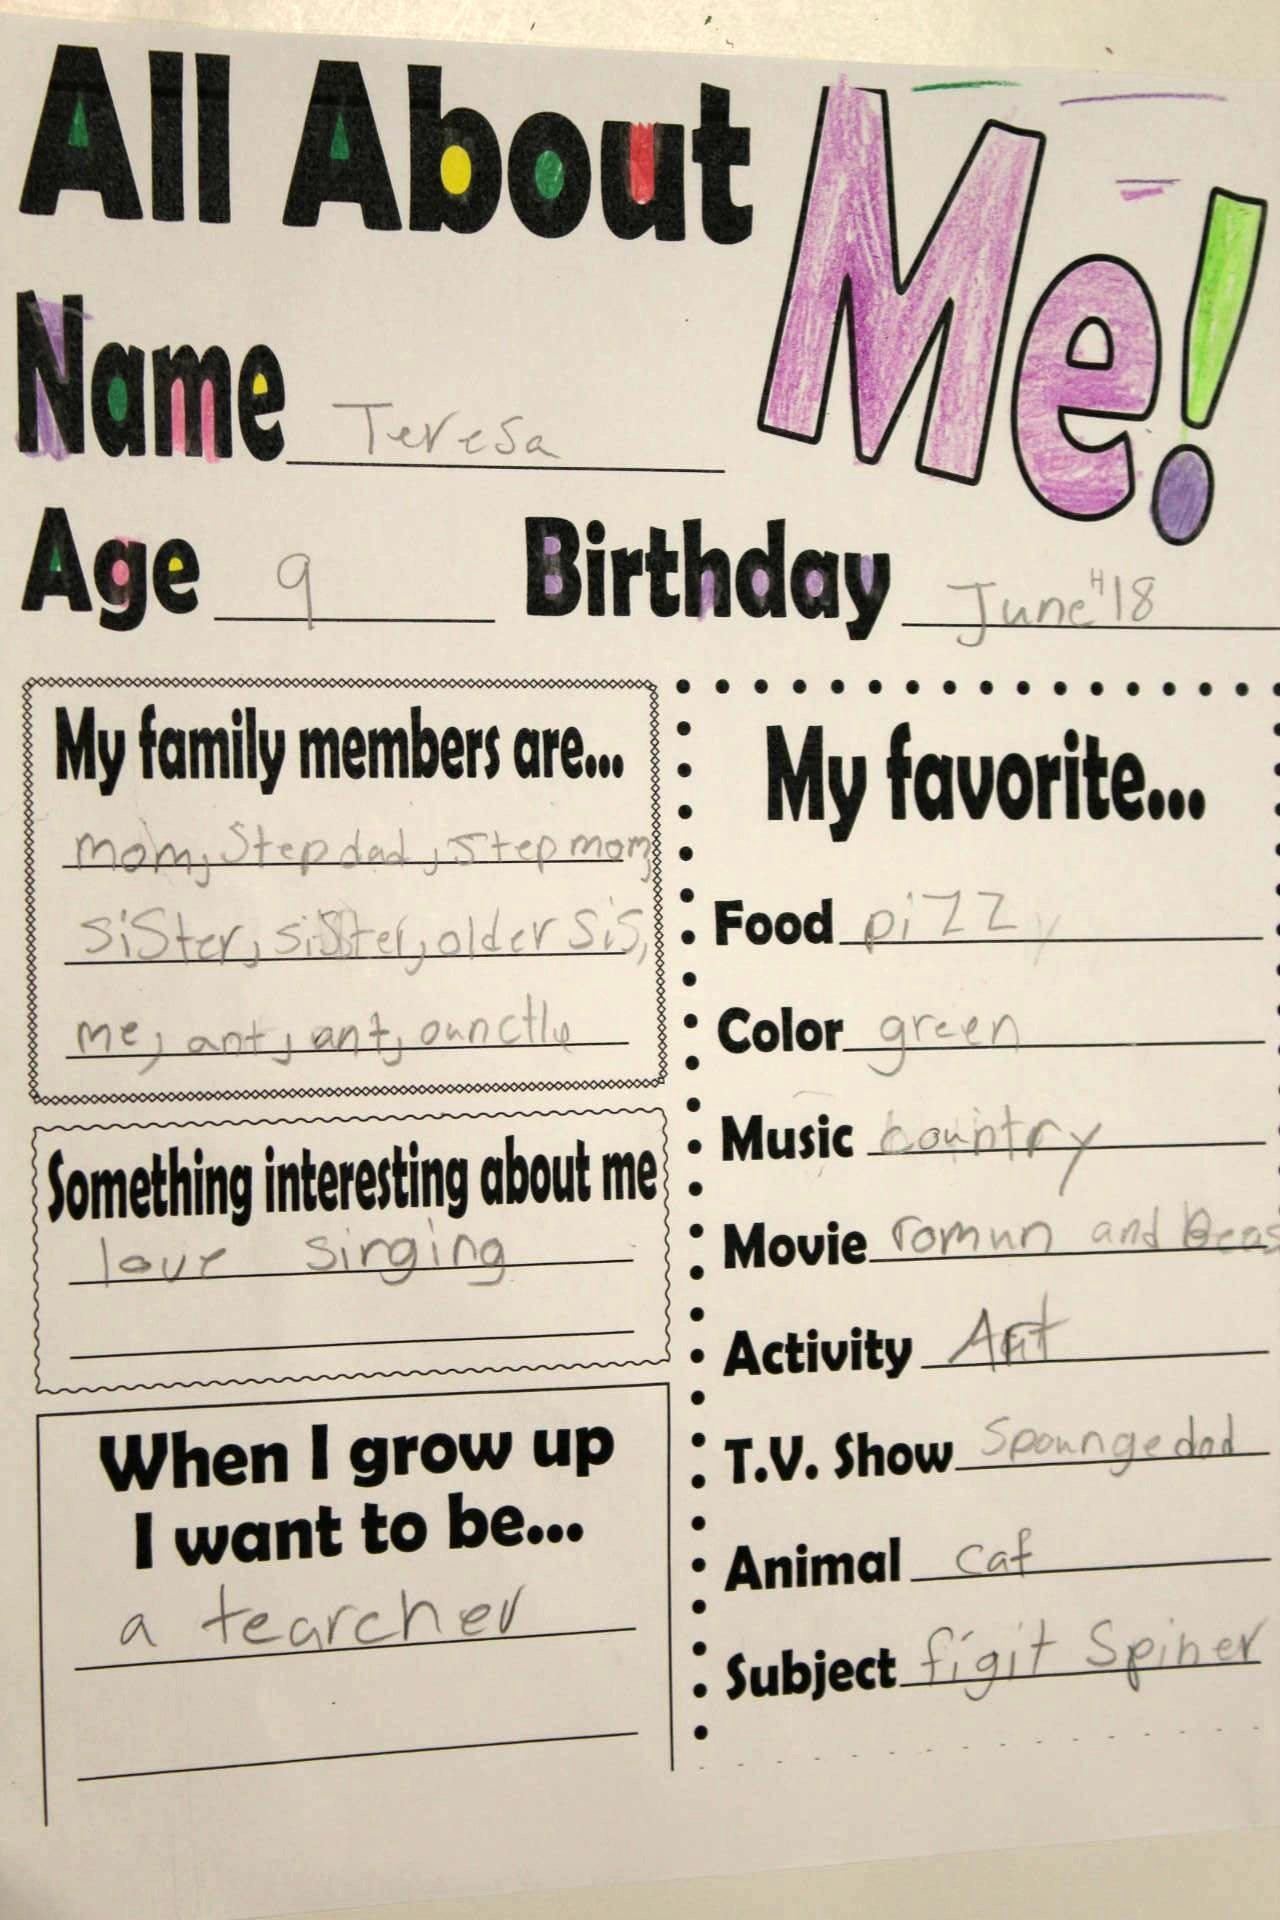 All About Me!
Name Teresa
Age 9 Birthday June "18
My family members are...
mom, Stepdad, stepmom,
siSter, siSter, older Sis,
me, ant, ant, ounctle
Something interesting about me
love singing
When I grow up
I want to be...
a tearcher
My favorite...
Food piZZ
Color green
Music country
Movie romun and Beas
Activity Art
T.V. Show Spoungedod
Animal cat
Subject figit Spiner